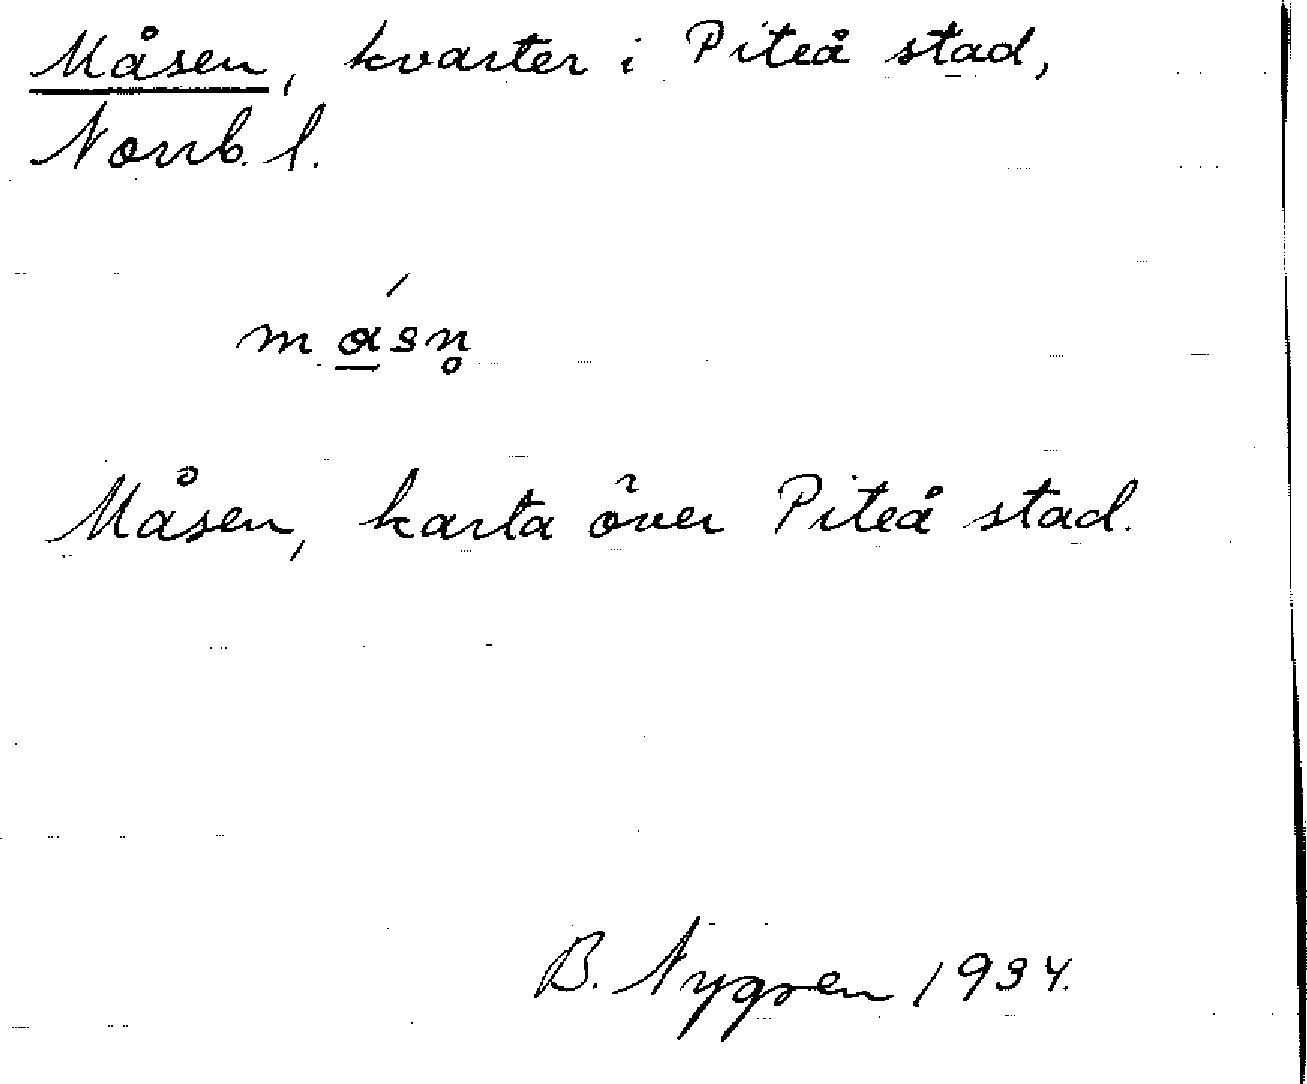 Måsen, kvarter i Piteå stad,
Norrb. l.
mɑ́sn̥
Måsen, karta över Piteå stad.
B. Nygren 1934.